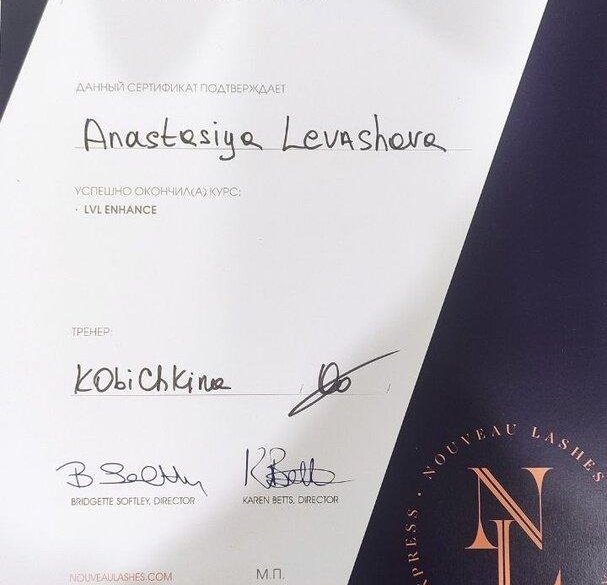 ДАННЫЙ СЕРТИФИКАТ ПОДТВЕРЖДАЕТ
Anastasiya Levashova
УСПЕШНО ОКОНЧИЛ(А) КУРС:
· LVL ENHANCE
ТРЕНЕР:
KObiChkina
BRIDGETTE SOFTLEY, DIRECTOR
KAREN BETTS, DIRECTOR
NOUVEAULASHES.COM
М.П.
PRESS · NOUVEAU LASHES
NL